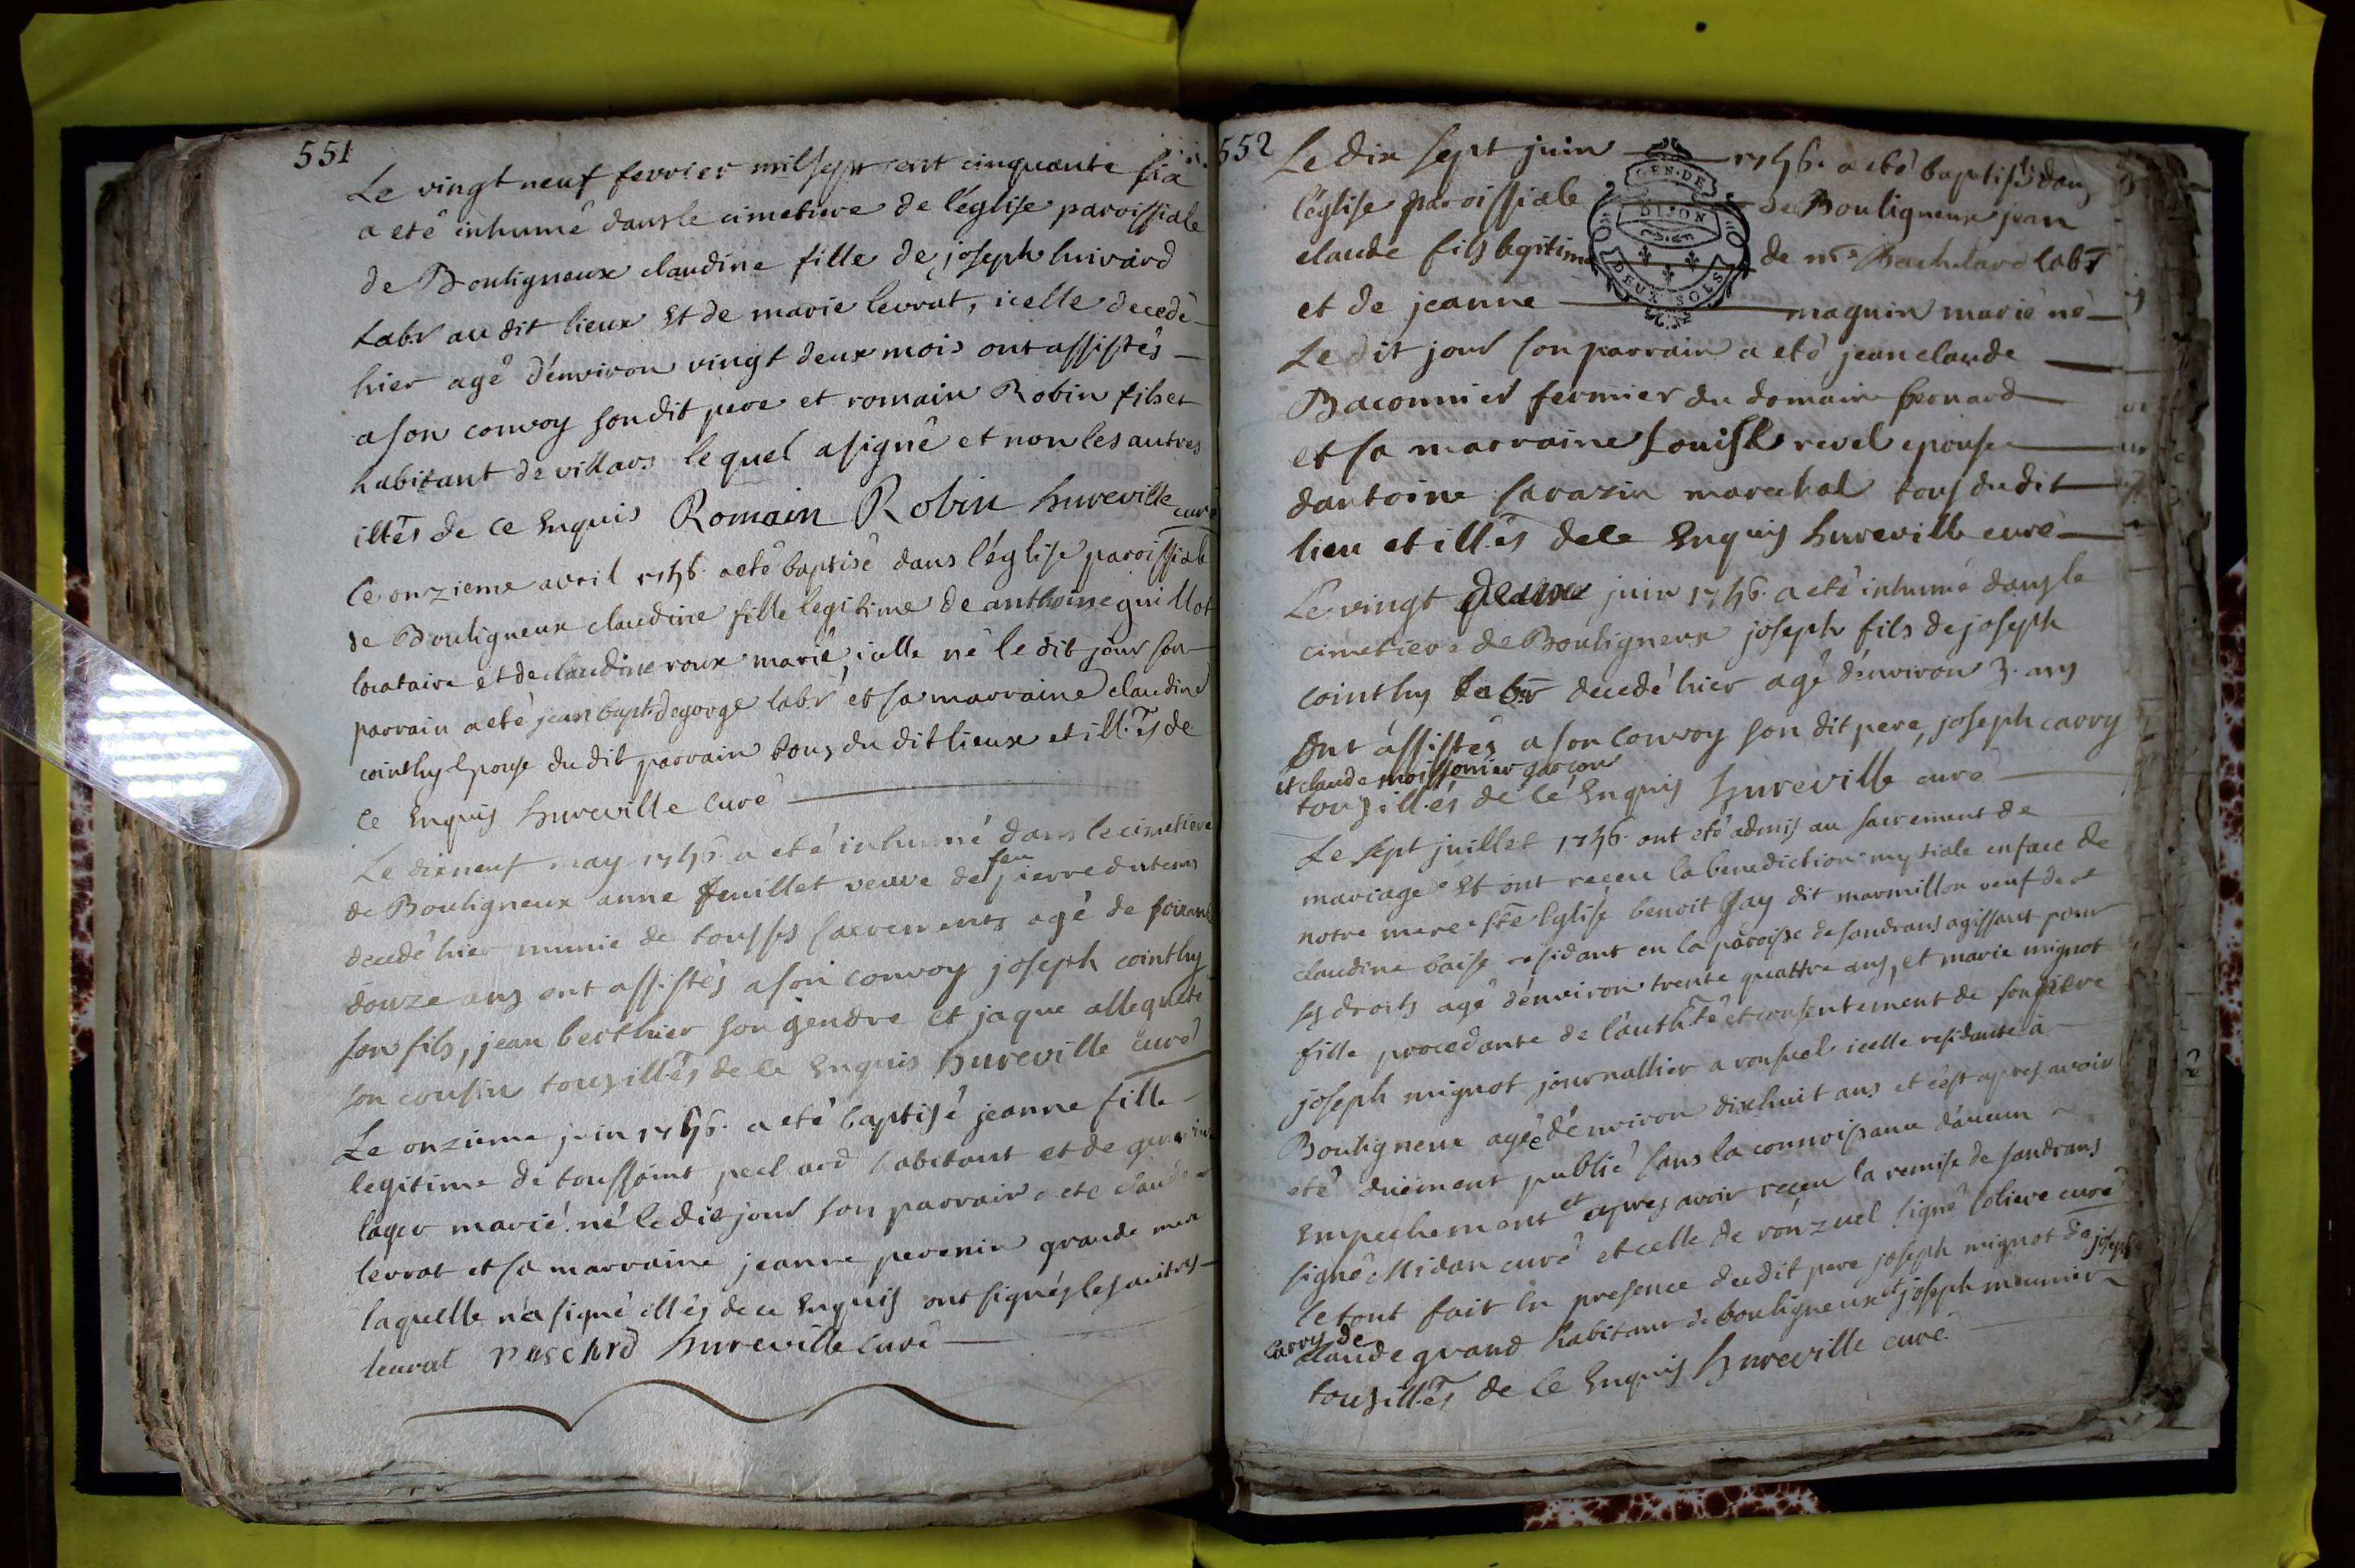 551
Le vingt neuf fevrier mil sept cent cinquante six
a eté inhumé dans le cimetiere de l'eglise paroissiale
de Bouligneux claudine fille de joseph huivard
Labr au dit lieux Et de marie levrat, icelle decedé
hier agé d'environ vingt deux mois ont assistés
a son convoy son dit pere et romain Robin fils et
habitant de villars lequel a signé et non les autres
illtés de ce Enquis Romain Robin hureville curé
Le onzieme avril 1756. a eté baptisé dans l'église paroissiale
de Bouligneux claudine fille legitime de anthoine guillot
locataire et de claudine roux marié, icelle né le dit jour son
parrain a eté jean bapt. degorge labr et sa marraine claudine
cointhy Epouse du dit parrain tous du dit lieux et ill.tés de
ce Enquis hureville Curé
Le dixneuf may 1756 a eté inhumé dans le cimetiere
de Bouligneux anne feuillet veuve de feu pierre dutems
decedé hier munie de tous ses sacrements agé de soixante
douze ans ont assistés a son convoy joseph cointhy
son fils, jean berthier son gendre et jaque allegrete
son cousin tous ill.tés de ce Enquis hureville curé
Le onzieme juin 1756. a eté baptisé jeanne fille
legitime de toussaint peclard habitant et de
lager marié. né le dit jour son parrain a eté claude
levrat et sa marraine jeanne perenin grande mere
laquelle n'a signé illtés de ce Enquis ont signés les autres
leurat peschrd hureville Curé
552
Le dix sept juin 1756. a eté baptisé dans
l'église paroissiale de Bouligneux jean
GEN. DE
DIJON
DEUX SOLS
claude fils legitime de me Bachelard labr
et de jeanne maguin marié né
Le dit jour son parrain a eté jean claude
Baconnier fermier du domaine fronard
et sa marraine Louise revel epouse
dantoine sarazin marechal tous du dit
lieu et ill.tés de ce Enquis hureville curé
Le vingt deux juin 1756. a eté inhumé dans le
cimetiere de Bouligneux joseph fils de joseph
cointhy labr decedé hier agé d'environ 3. ans
Ont assistés a son convoy son dit pere, joseph carry
et claude moissonier garcon
tous ill.tés de ce Enquis hureville curé
Le sept juillet 1756. ont eté admis au sacrement de
mariage Et ont receu la benediction nuptiale en face de
notre mere ste Eglise benoit Gay dit marmillon veuf de
claudine baise residant en la paroisse de sandrans agissant pour
ses droits agé d'environ trente quattre ans, et marie mignot
fille procedante de l'authté et consentement de son pere
joseph mignot journallier a ronsuel icelle residante à
Bouligneux agée d'environ dixhuit ans et c'est apres avoir
eté duement publié sans la connoissance d'aucun
Empechement et apres avoir receu la remise de sandrans
signé Midan curé et celle de ronzuel signé soliere curé
le tout fait en presence du dit pere joseph mignot de joseph
carry de
claude grand habitant de bouligneux et joseph meunier
tous ill.tés de ce Enquis hureville curé